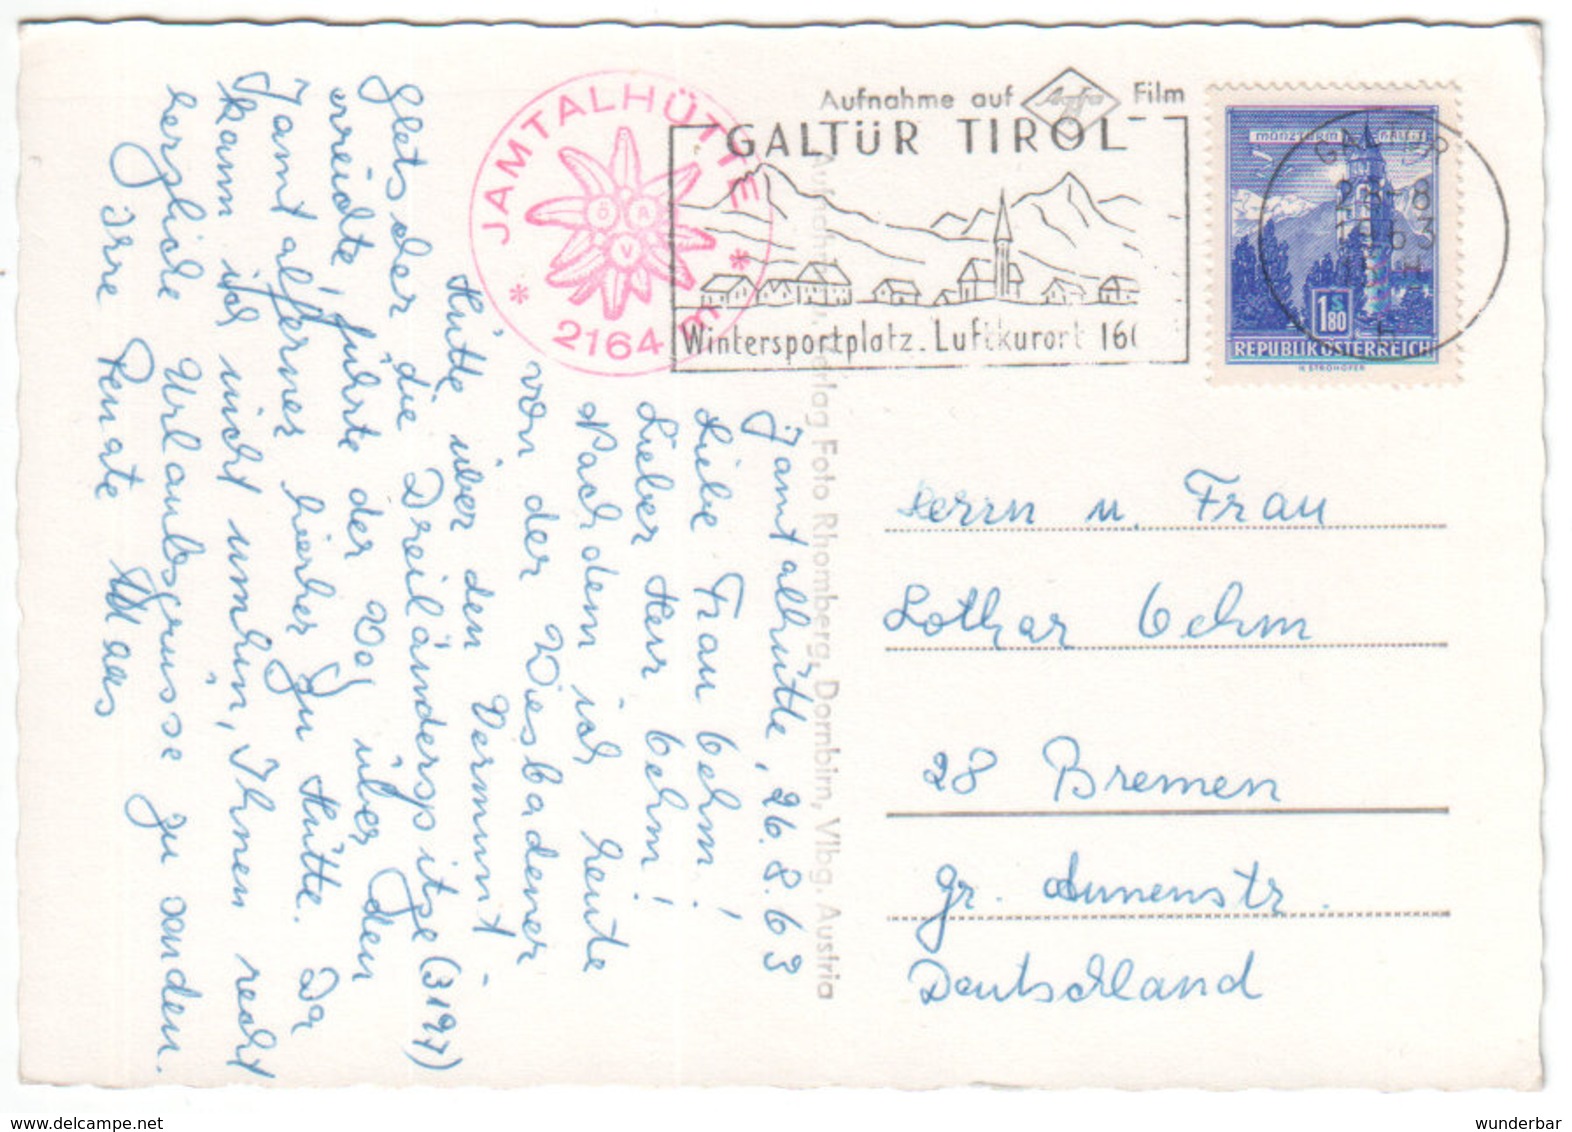 Aufnahme auf Agfa Film
JAMTALHÜTTE
ö A V
* 2164 m *
GALTÜR TIROL
Wintersportplatz. Luftkurort 160
GALTÜR
28-8
1963
MÜNZTURM HALL I.T.
1 S 80
REPUBLIK ÖSTERREICH
H. STROHOFER
Verlag Foto Rhomberg, Dornbirn, Vlbg. Austria
Jamtalhütte, 26.8.63
Liebe Frau Oehm!
Lieber Herr Oehm!
Nachdem ich heute
von der Wiesbadener
Hütte über den Vermunt
Gletscher die Dreiländerspitze (3197)
erreichte, führte der Weg über den
Jamtalferner hierher zu Hütte. Da
kann ich nicht umhin, Ihnen recht
herzliche Urlaubsgrüsse zu senden.
Ihre Renate Maas
Herrn u. Frau
Lothar Oehm
28 Bremen
gr. Annenstr.
Deutschland
www.delcampe.net
wunderbar